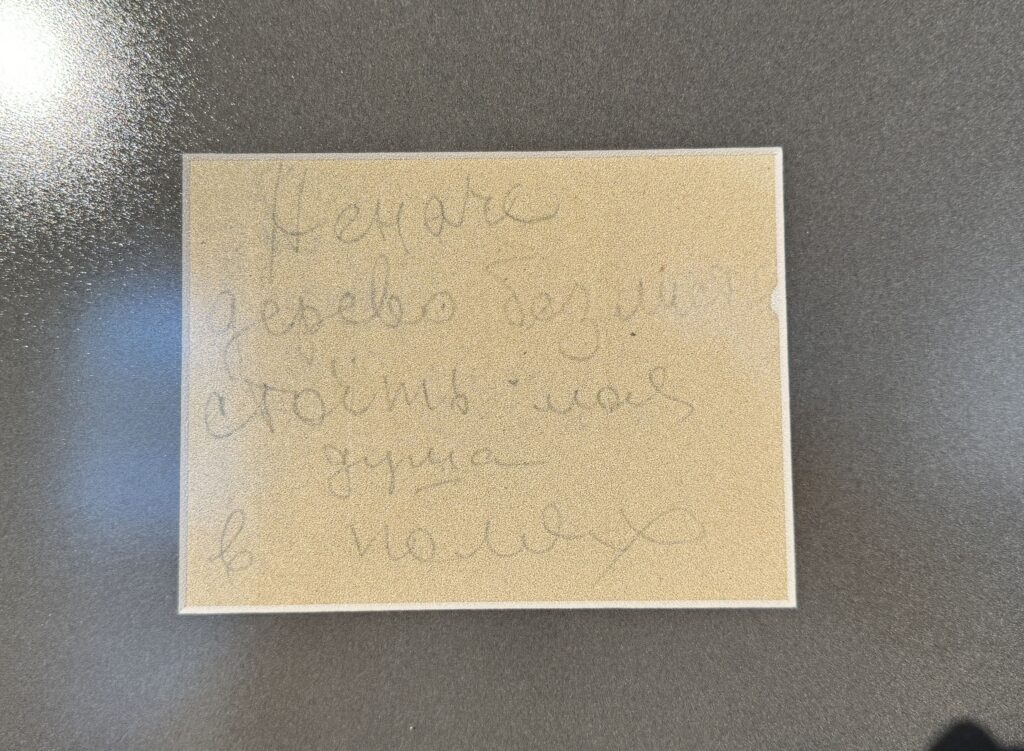 Неначе
дерево без листя
стоїть моя
душа
в полях